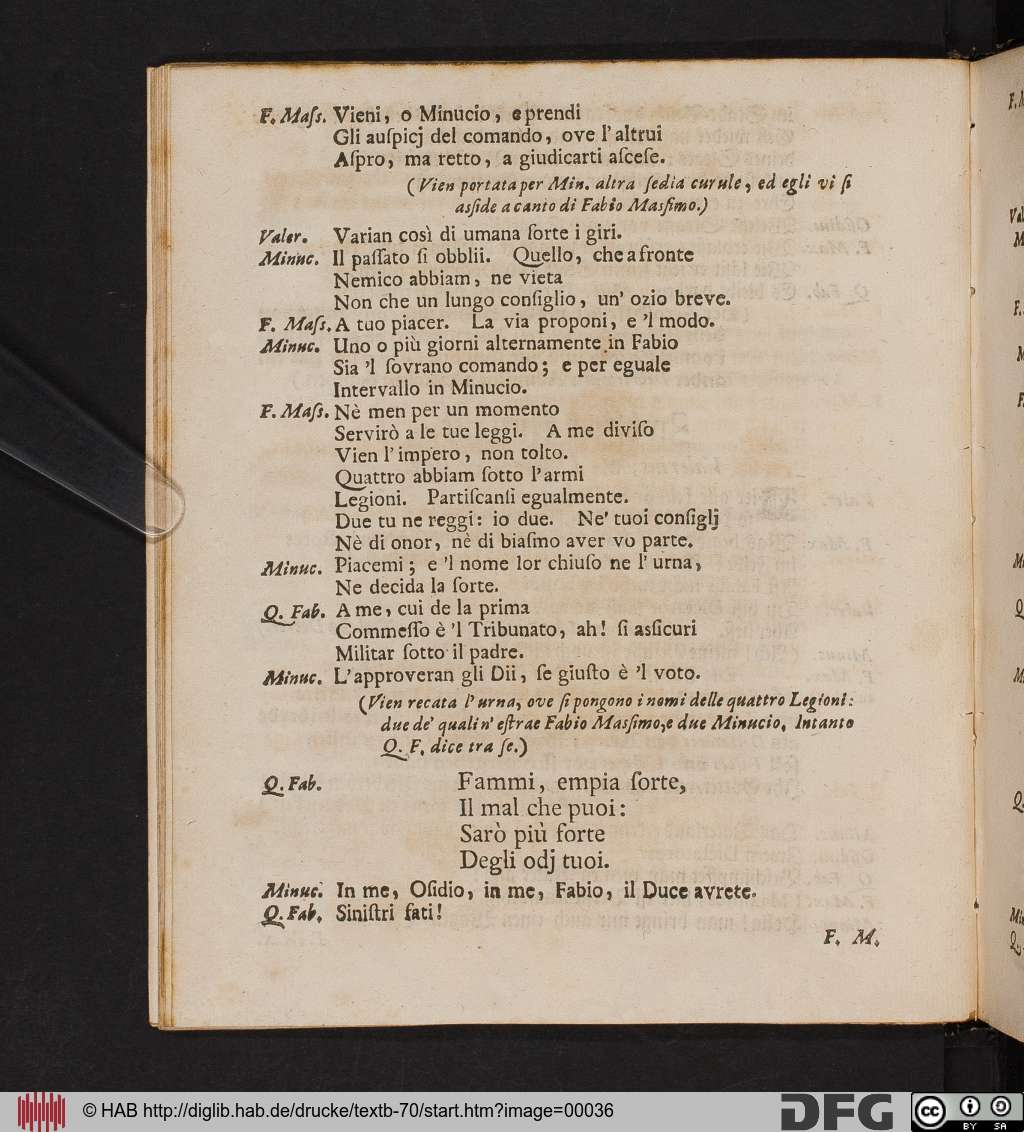 F. Maſs. Vieni, o Minucio, e prendi
Gli auſpicj del comando, ove l'altrui
Aſpro, ma retto, a giudicarti aſceſe.
(Vien portata per Min. altra ſedia curule, ed egli vi ſi
aſſide a canto di Fabio Masſimo.)
Valer. Varian così di umana ſorte i giri.
Minuc. Il paſſato ſi obblii. Quello, che a fronte
Nemico abbiam, ne vieta
Non che un lungo conſiglio, un' ozio breve.
F. Maſs. A tuo piacer. La via proponi, e 'l modo.
Minuc. Uno o più giorni alternamente in Fabio
Sia 'l ſovrano comando; e per eguale
Intervallo in Minucio.
F. Maſs. Nè men per un momento
Servirò a le tue leggi. A me diviſo
Vien l'impero, non tolto.
Quattro abbiam ſotto l'armi
Legioni. Partiſcanſi egualmente.
Due tu ne reggi: io due. Ne' tuoi conſiglj
Nè di onor, nè di biaſmo aver vo parte.
Minuc. Piacemi; e 'l nome lor chiuſo ne l'urna,
Ne decida la ſorte.
Q. Fab. A me, cui de la prima
Commeſſo è 'l Tribunato, ah! ſi asſicuri
Militar ſotto il padre.
Minuc. L'approveran gli Dii, ſe giuſto è 'l voto.
(Vien recata l'urna, ove ſi pongono i nomi delle quattro Legioni:
due de' quali n' eſtrae Fabio Masſimo, e due Minucio. Intanto
Q. F. dice tra ſe.)
Q. Fab. Fammi, empia ſorte,
Il mal che puoi:
Sarò più forte
Degli odj tuoi.
Minuc. In me, Oſidio, in me, Fabio, il Duce avrete.
Q. Fab. Siniſtri fati!
F. M.
© HAB http://diglib.hab.de/drucke/textb-70/start.htm?image=00036
DFG
cc BY SA